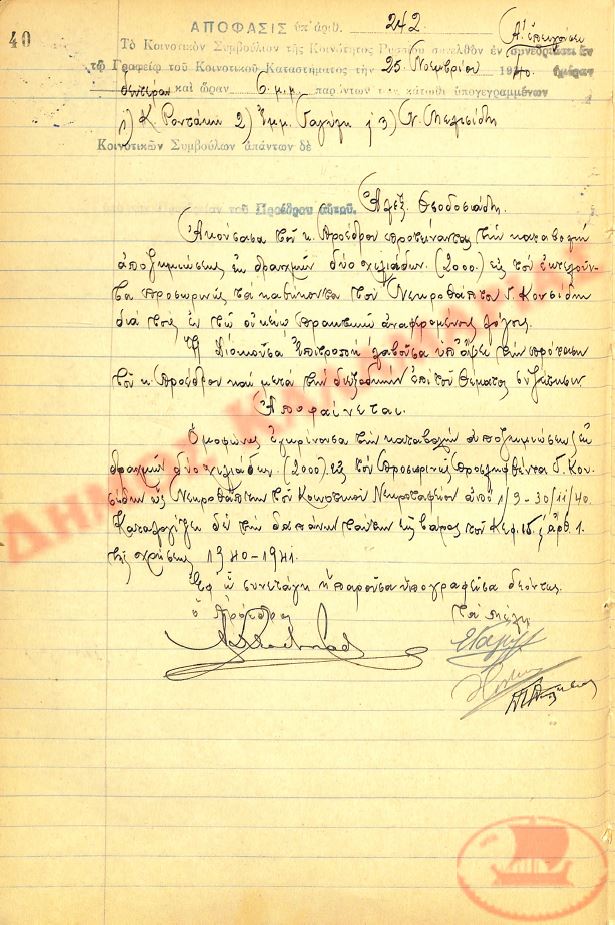 40
ΑΠΟΦΑΣΙΣ ὑπ' ἀριθ. 242
Τὸ Κοινοτικὸν Συμβούλιον τῆς Κοινότητος Ρυσίου συνελθὸν ἐν συνεδριάσει ἐν
τῷ Γραφείῳ τοῦ Κοινοτικοῦ Καταστήματος τὴν 25 Νοεμβρίου 1940 ἡμέραν
Δευτέραν καὶ ὥραν 6 μ.μ. παρόντων τῶν κάτωθι ὑπογεγραμμένων
1) Κ. 2) Ἐμμ. 3) Ν.
Κοινοτικῶν Συμβούλων ἀπάντων δὲ
τοῦ Προέδρου αὐτοῦ. Ἀλεξ. Θεοδοσιάδη.
Ἀκούσασα τοῦ κ. Προέδρου προτείναντος τὴν καταβολὴν
ἀποζημιώσεως ἐκ δραχμῶν δύο χιλιάδων (2000) εἰς τὸν ἐκτελοῦν-
τα προσωρινῶς τὰ καθήκοντα τοῦ Νεκροθάπτου Γ. Κουσίδη
διὰ τοὺς ἐν τῷ οἰκείῳ πρακτικῷ ἀναφερομένους λόγους.
Ἡ Διοικοῦσα Ἐπιτροπὴ λαβοῦσα ὑπ' ὄψει τὴν πρότασιν
τοῦ κ. Προέδρου καὶ μετὰ τὴν διεξοδικὴν ἐπὶ τοῦ θέματος συζήτησιν
Ἀποφαίνεται.
Ὁμοφώνως ἐγκρίνουσα τὴν καταβολὴν ἀποζημιώσεως ἐκ
δραχμῶν δύο χιλιάδων (2000) εἰς τὸν προσωρινῶς προσληφθέντα Γ. Κου-
σίδην ὡς Νεκροθάπτην τοῦ Κοινοτικοῦ Νεκροταφείου ἀπὸ 1/9-30/11/40.
Καταλογίζει δὲ τὴν δαπάνην ταύτην εἰς βάρος τοῦ Κεφ. ἄρθ. 1
τῆς χρήσεως 1940-1941.
Ἐφ' ᾧ συνετάγη ἡ παροῦσα ὑπογραφεῖσα δεόντως.
Ὁ Πρόεδρος Τὰ Μέλη
ΔΗΜΟΣ ΚΑΛΑΜΑΡΙΑΣ